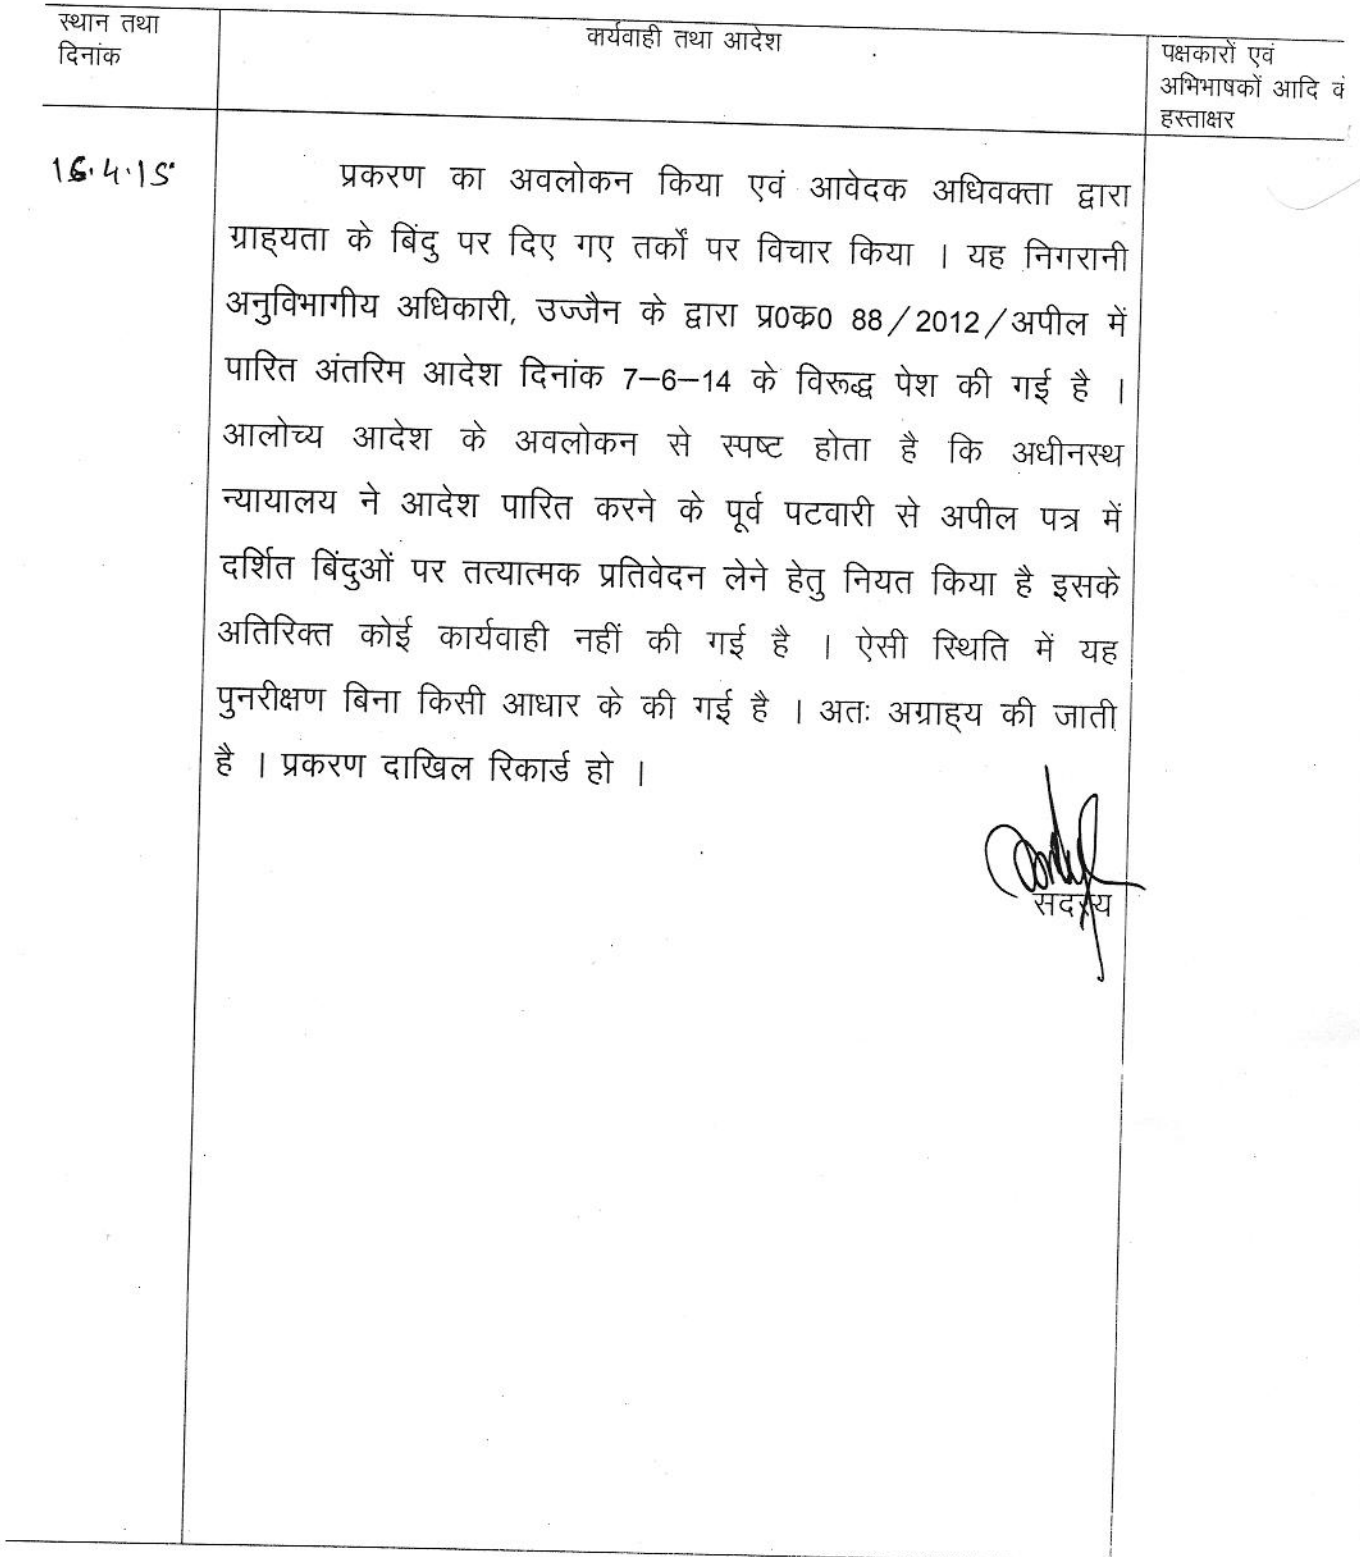 स्थान तथा
दिनांक
कार्यवाही तथा आदेश
पक्षकारों एवं
अभिभाषकों आदि के
हस्ताक्षर
16.4.15
प्रकरण का अवलोकन किया एवं आवेदक अधिवक्ता द्वारा
ग्राह्यता के बिंदु पर दिए गए तर्कों पर विचार किया । यह निगरानी
अनुविभागीय अधिकारी, उज्जैन के द्वारा प्र0क0 88/2012/अपील में
पारित अंतरिम आदेश दिनांक 7–6–14 के विरूद्ध पेश की गई है ।
आलोच्य आदेश के अवलोकन से स्पष्ट होता है कि अधीनस्थ
न्यायालय ने आदेश पारित करने के पूर्व पटवारी से अपील पत्र में
दर्शित बिंदुओं पर तत्यात्मक प्रतिवेदन लेने हेतु नियत किया है इसके
अतिरिक्त कोई कार्यवाही नहीं की गई है । ऐसी स्थिति में यह
पुनरीक्षण बिना किसी आधार के की गई है । अतः अग्राह्य की जाती
है । प्रकरण दाखिल रिकार्ड हो ।
सदस्य